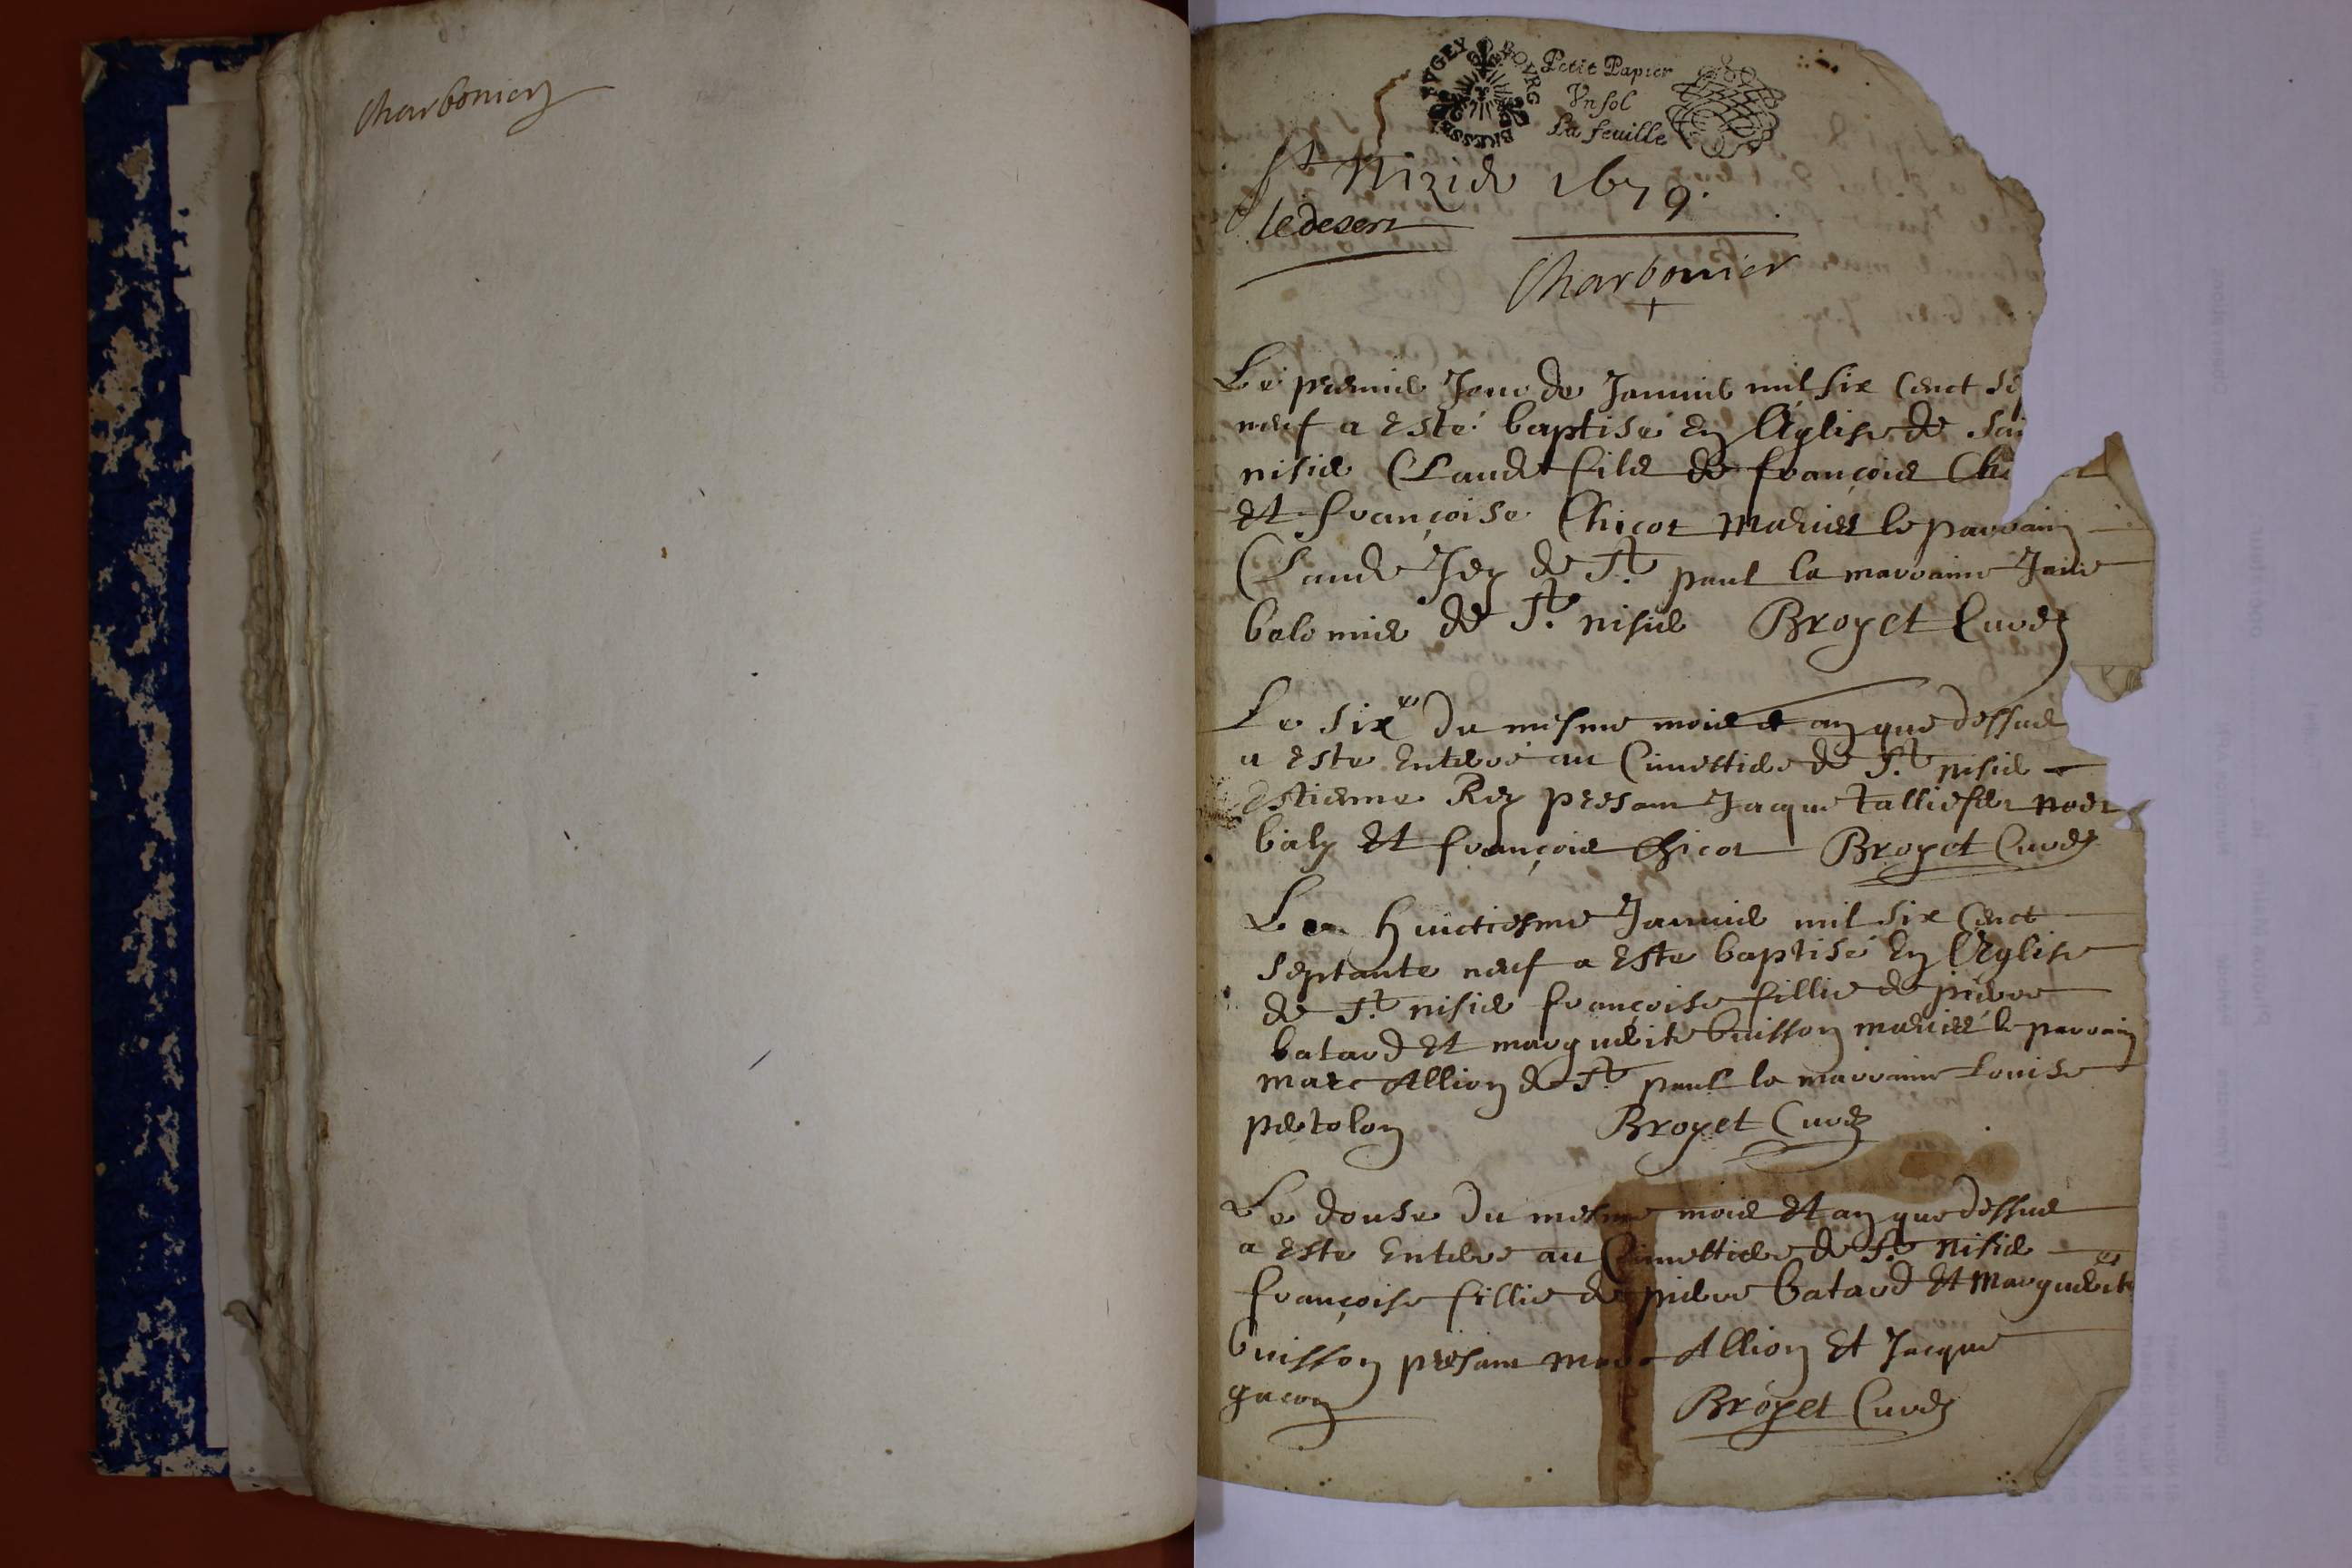 Charbonier
BVGEY BOVRG BRESSE
Petit Papier
Vn sol
La feuille
St Nizie 1679.
le desert
Charbonier
Le premier Jour de Janvier mil six Cenct se
neuf a Esté baptisé En l'Eglise de Sai
nisies Claude fils de françois Ch
Et françoise Chicot Mariés le parrain
Claude Jey de St. paul la marraine
de St. nisies Broyet Curé
Le sixe du mesme mois et an que dessus
a Este Enterré au Cimettiere de St. nisies
Estienne Rey presant Jacque talliefert noer
baly Et françois Chicot Broyet Curé
Le huictiesme Janvier mil six Cenct
septante neuf a Este baptisé En l'Eglise
de St. nisies françoise fillie de pierre
batard Et marguerite buisson mariés le parrain
marc Allion de St. paul la marraine Louise
pertolon Broyet Curé
Le douse du mesme mois Et an que dessus
a Este Enterré au Cimettiere de St. nisies
françoise fillie de pierre batard Et Marguerite
buisson presant marc Allion Et Jacque
gacon Broyet Curé